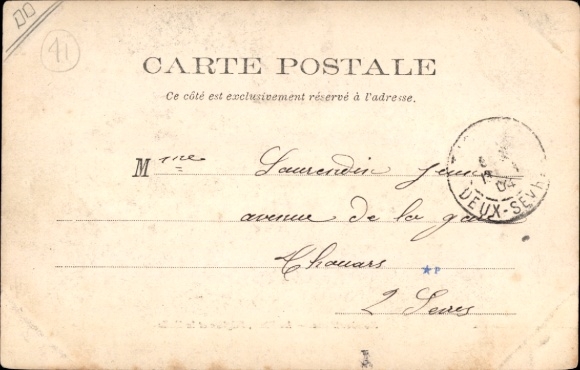 DO
41
CARTE POSTALE
Ce côté est exclusivement réservé à l'adresse.
Mme Laurendin
avenue de la gare
Thouars
2 Sevres
04
DEUX-SEVR
P